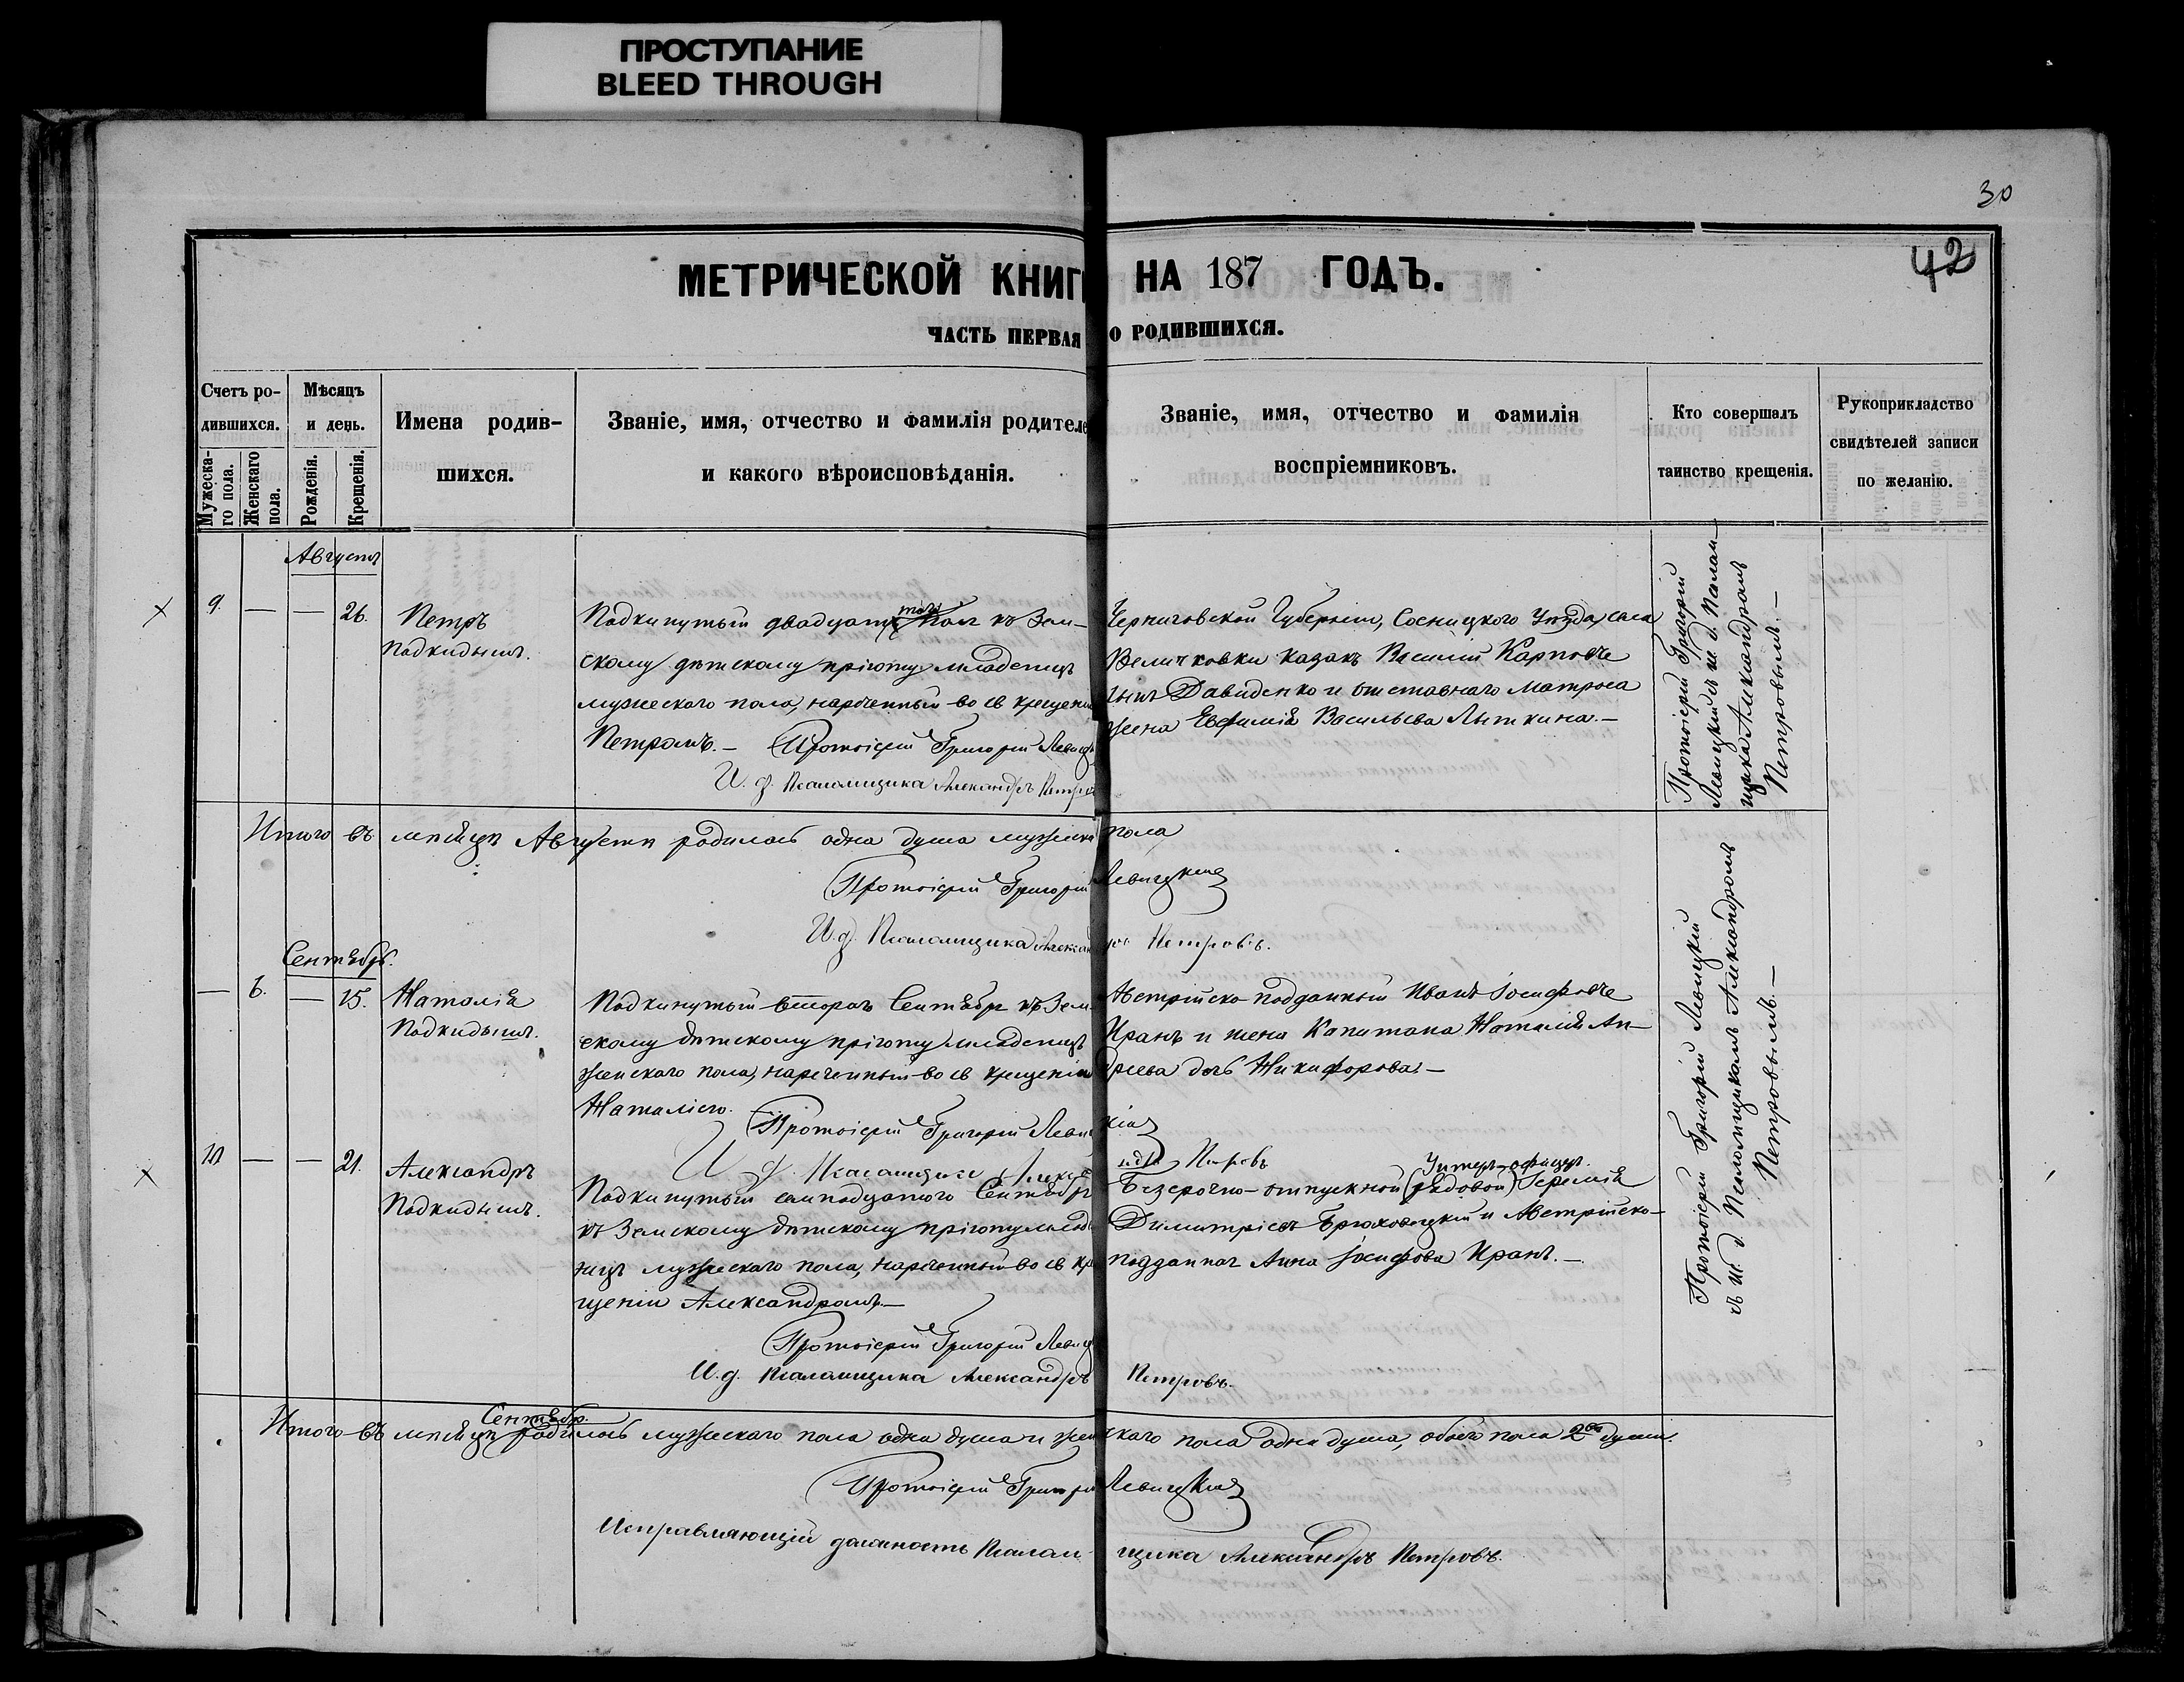 ПРОСТУПАНИЕ
BLEED THROUGH
30
42
МЕТРИЧЕСКОЙ КНИГ НА 187 ГОДЪ.
ЧАСТЬ ПЕРВАЯ О РОДИВШИХСЯ.
Счетъ родившихся.
Мужескаго пола.
Женскаго пола.
Мѣсяцъ и день.
Рожденія.
Крещенія.
Имена родив-
шихся.
Званіе, имя, отчество и фамилія родителе
и какого вѣроисповѣданія.
Званіе, имя, отчество и фамилія
воспріемниковъ.
Кто совершалъ
таинство крещенія.
Рукоприкладство
свидѣтелей записи
по желанію.
Августъ
9. — — 26.
Петръ
Подкидышъ.
Подкинутый къ Зем-
скому дѣтскому пріюту младенецъ
мужескаго пола, нареченный во св крещені
Петромъ. — Протоіерей Григорій Левиц
И. д. Псаломщика Александръ Петро
Черниговской Губерніи, Сосницкого Уѣзда, села
Величковки казакъ Василій Карповъ
сынъ Давиденко и отставнаго Матроса
жена Евфимія Васильева Лыткина. —
Протоіерей Григорій
Левицкій съ и. д. Псалом-
щика Александромъ
Петровымъ. —
Итого въ мѣсяцѣ Августѣ родилось одна душа мужеска пола
Протоіерей Григорій Левицкій
И. д. Псаломщика Александръ Петровъ.
Сентябрь.
— 6. — 15.
Наталія
Подкидышъ.
Подкинутый втораго Сентября къ Зем-
скому дѣтскому пріюту младенецъ
женскаго пола, нареченный во св крещеніи
Наталіею.
Протоіерей Григорій Левицкій
И. д. Псаломщика
Австрійско-подданный Иванъ Іосифовъ
Кранъ и жена Капитана Наталія Ан-
дреева дочь Никифорова. —
10 — — 21.
Александръ
Подкидышъ.
Подкинутый семнадцатого Сентября
къ Земскому дѣтскому пріюту младе
нецъ мужескаго пола, нареченный во св кре
щеніи Александромъ. —
Протоіерей Григорій Левиц
И. д. Псаломщика Александръ Петровъ.
Унтеръ-офицеръ.
Безсрочно-отпускной (рядовой) Іеремія
Димитріевъ Брюховецкій и Австрійско-
подданная Анна Іосифова Кранъ. —
Протоіерей Григорій Левицкій
съ и. д. Псаломщикомъ Александромъ
Петровымъ. —
Итого въ мѣсяцѣ Сентябрѣ родилось мужескаго пола одна душа и женскаго пола одна душа, обоего пола 2 души.
Протоіерей Григорій Левицкій
Исправляющій должность Псаломщика Александръ Петровъ.